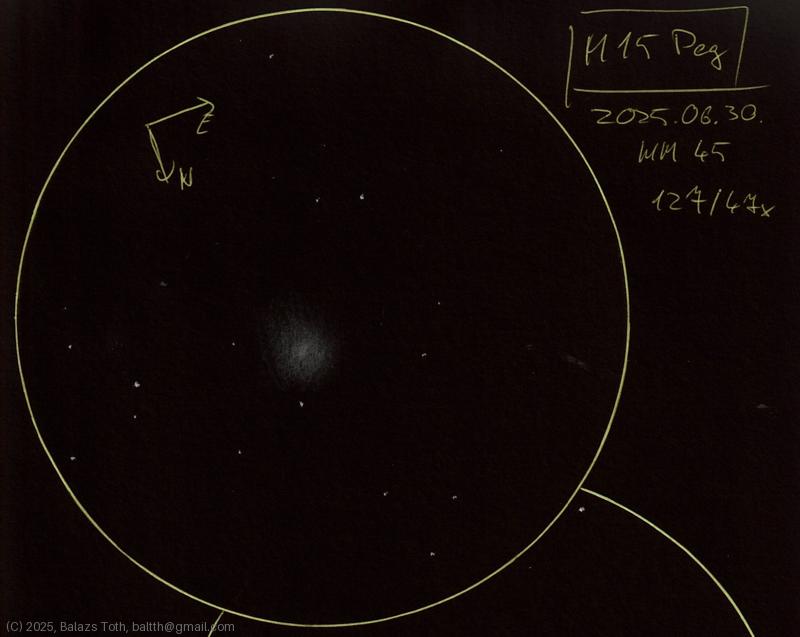 M 15 Peg
2025.06.30.
MM 45
127/47x
E
N
(C) 2025, Balazs Toth, baltth@gmail.com